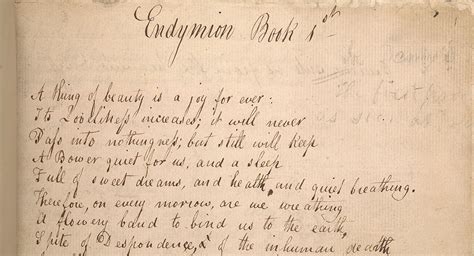 Endymion Book 1st
A thing of beauty is a joy for ever:
Its Loveliness increases; it will never
Pass into nothingness; but still will keep
A Bower quiet for us, and a sleep
Full of sweet dreams, and health, and quiet breathing.
Therefore, on every morrow, are we wreathing
A flowery band to bind us to the earth,
Spite of Despondence, of the inhuman dearth